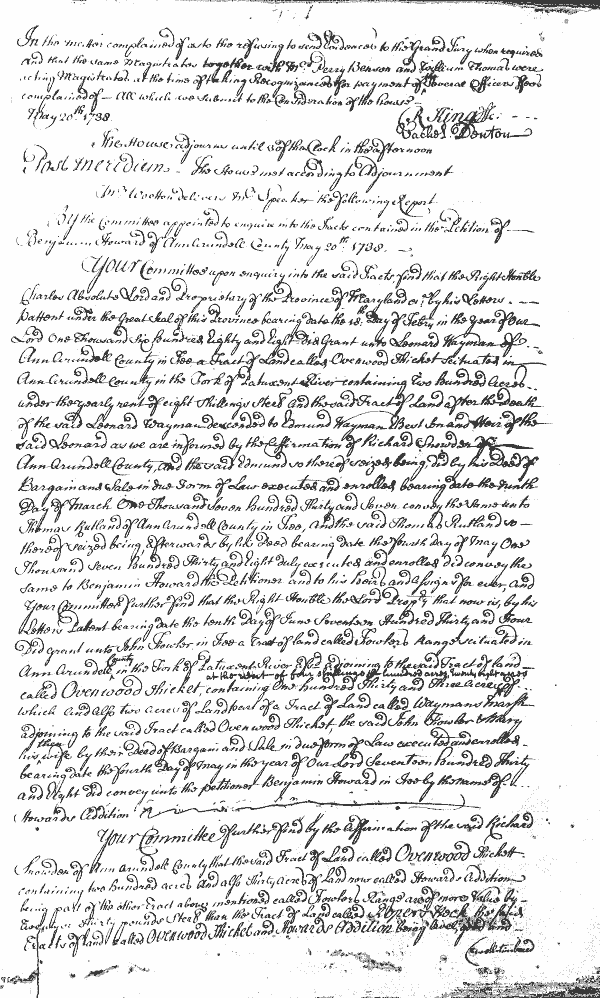 In the matter complained of as to the refusing to send Evidences to the Grand Jury when required
and that the same Magistrates together with Mr. Perry Benson and William Thomas were
acting Magistrates at the time of taking Recognizances for payment of several Officers Fees
complained of — All which we submit to the Consideration of the house
May 20th 1738.
R King
Vachel Denton
The House adjourns until of the Clock in the afternoon
Post Meridiem The House met according to Adjournment
Mr. Wootton delivers Mr. Speaker the following Report
By the Committee appointed to enquire into the Facts contained in the Petition of
Benjamin Howard of Ann Arundell County May 20th 1738.
Your Committee upon enquiry into the said Facts find that the Right Honble
Charles Absolute Lord and Proprietary of the Province of Maryland &c; by his Letters
Pattent under the Great Seal of this Province bearing date the 18th Day of Febry in the year of Our
Lord One Thousand Six Hundred Eighty and Eight Did Grant unto Leonard Wayman of
Ann Arundell County in Fee a Tract of Land called Ovenwood Thicket situated in
Ann Arundell County in the Fork of Patuxent River containing Two Hundred Acres
under the yearly rent of eight Shillings Sterl and the said Tract of Land after the Death
of the said Leonard Wayman descended to Edmund Wayman Best Son and Heir of the
said Leonard as we are informed by the Affirmation of Richard Snowden of
Ann Arundell County, and the said Edmund so thereof seized being, did by his Deed of
Bargain and Sale in due Form of Law executed and enrolled bearing date the ninth
Day of March One Thousand Seven hundred Thirty and Seven convey the same unto
Thomas Rutland of Ann Arundell County in Fee, and the said Thomas Rutland so
thereof seized being, afterwards by his Deed bearing date the fourth day of May One
Thousand Seven Hundred Thirty and Eight duly executed and enrolled did convey the
same to Benjamin Howard the Petitioner and to his heirs and Assigns for ever, And
Your Committee further find that the Right Honble the Lord Propry that now is, by his
Letters Patent bearing date the tenth day of June Seventeen Hundred Thirty and Four
Did grant unto John Fowler, in Fee a Tract of land called Fowlers Range situated in
Ann Arundell County in the Fork of Patuxent River adjoining to the said Tract of land
at the rent of four shillings hundred acres, twenty eight acres
called Ovenwood Thicket, containing One hundred Thirty and Three Acres of
which And also two Acres of Land part of a Tract of Land called Waymans Mark
adjoining to the said Tract called Ovenwood Thicket, the said John Fowler & Mary
his then wife by their Deed of Bargain and Sale in due form of Law executed and enrolled
bearing date the fourth Day of May in the year of Our Lord Seventeen hundred Thirty
and Eight did convey unto the petitioner Benjamin Howard in Fee by the name of
Howards Addition
Your Committee further find by the Affirmation of the said Richard
Snowden of Ann Arundell County that the said Tract of Land called Ovenwood Thickett
containing two Hundred acres And also Thirty Acres of Land now called Howards Addition
being part of the other Tract above mentioned called Fowlers Range are of more Value by
Twenty or Thirty pounds Sterl than the Tract of Land called the said
Tracts of land called Ovenwood Thicket and Howards Addition being level, good and